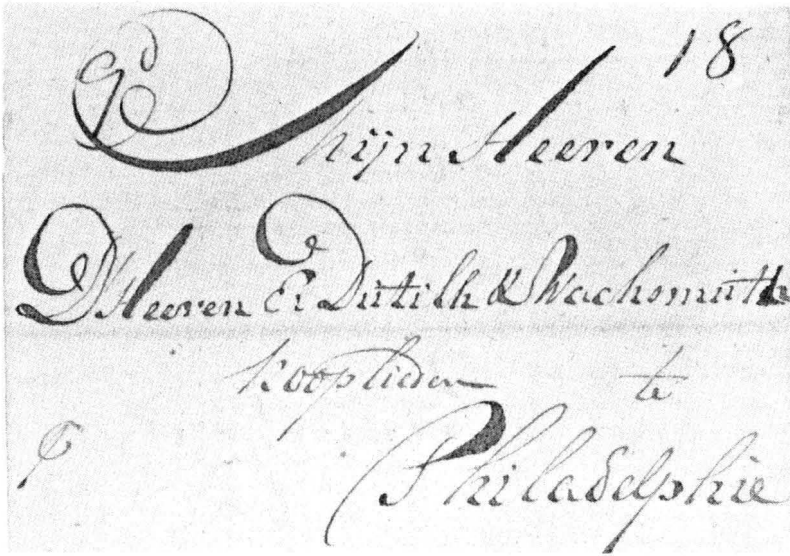 18
Mijn Heeren
D'Heeren E: Dutilh & Wachsmuth
kooplieden te
Philadelphie